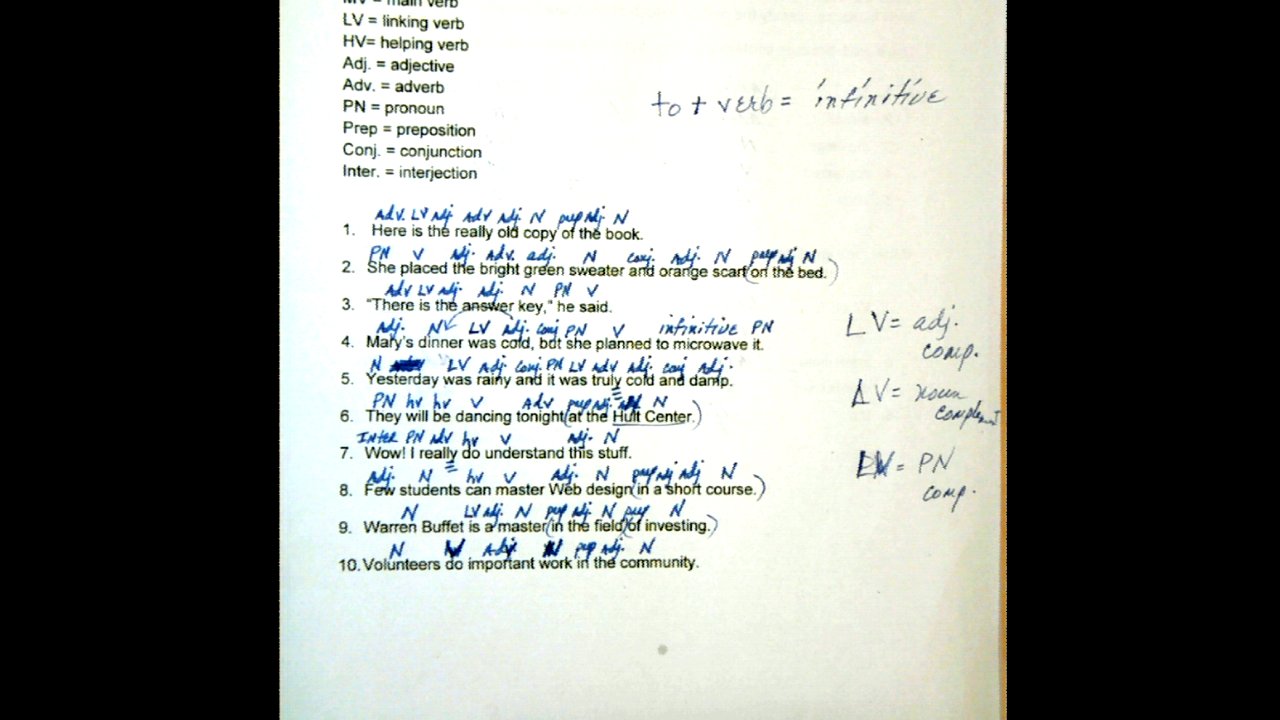 MV = main verb
LV = linking verb
HV= helping verb
Adj. = adjective
Adv. = adverb
PN = pronoun
Prep = preposition
Conj. = conjunction
Inter. = interjection
to + verb = infinitive
Adv. LV Adj. Adv Adj. N prep Adj. N
1. Here is the really old copy of the book.
PN V Adj. Adv. adj. N conj. Adj. N prep adj N
2. She placed the bright green sweater and orange scarf (on the bed.)
Adv LV Adj. Adj. N PN V
3. "There is the answer key," he said.
Adj. N LV Adj. conj PN V infinitive PN
4. Mary's dinner was cold, but she planned to microwave it.
N LV Adj. conj. PN LV adv Adj. conj Adj.
5. Yesterday was rainy and it was truly cold and damp.
PN hv hv V Adv prep adj. N
6. They will be dancing tonight (at the Hult Center.)
Inter PN adv hv V adj. N
7. Wow! I really do understand this stuff.
Adj. N hv V Adj. N prep adj Adj N
8. Few students can master Web design (in a short course.)
N LV adj. N prep adj. N prep N
9. Warren Buffet is a master (in the field) (of investing.)
N V Adj. N prep adj. N
10. Volunteers do important work in the community.
LV = adj. comp.
LV = noun complement
LV = PN comp.